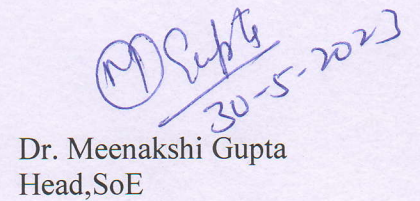 M Gupta
30-5-2023
Dr. Meenakshi Gupta
Head,SoE